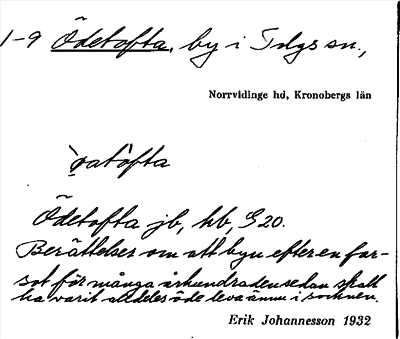 1-9 Ödetofta, by i Tolgs sn.,
Norrvidinge hd, Kronobergs län
Ödetofta jb, kb, G 20.
Berättelser om att byn efter en far-
sot för många århundraden sedan skall
ha varit alldeles öde leva ännu i socknen.
Erik Johannesson 1932